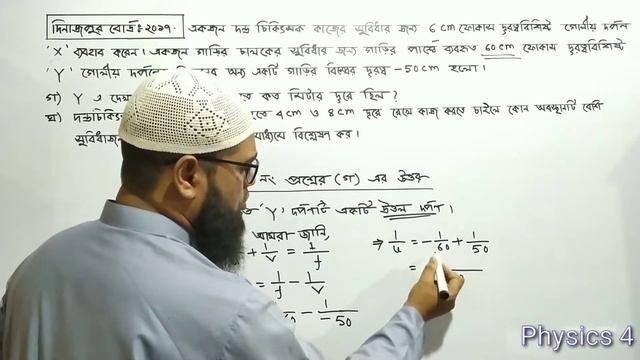 দিনাজপুর বোর্ড: ২০১৭. একজন দন্ত চিকিৎসক কাজের সুবিধার জন্য 6 cm ফোকাস দূরত্ববিশিষ্ট গোলীয় দর্পন
'X' ব্যবহার করেন। একজন গাড়ির চালকের সুবিধার জন্য গাড়ির পার্শ্বে ব্যবহৃত 60 cm ফোকাস দূরত্ববিশিষ্ট
'Y' গোলীয় অন্য একটি গাড়ির বিম্বের দূরত্ব -50 cm হলো।
গ) Y এ কত মিটার দূরে ছিল?
ঘ) 4 cm ও 8 cm দূরে রেখে কাজ করতে চাইলে কোন অবস্থানটি বেশি
বিশ্লেষণ কর।
নং প্রশ্নের (গ) এর উত্তর
'Y' দর্পণটি একটি উত্তল দর্পন।
আমরা জানি,
+ 1/v = 1/f
= 1/f - 1/v
- 1/-50
⇒ 1/u = - 1/60 + 1/50
=
Physics 4